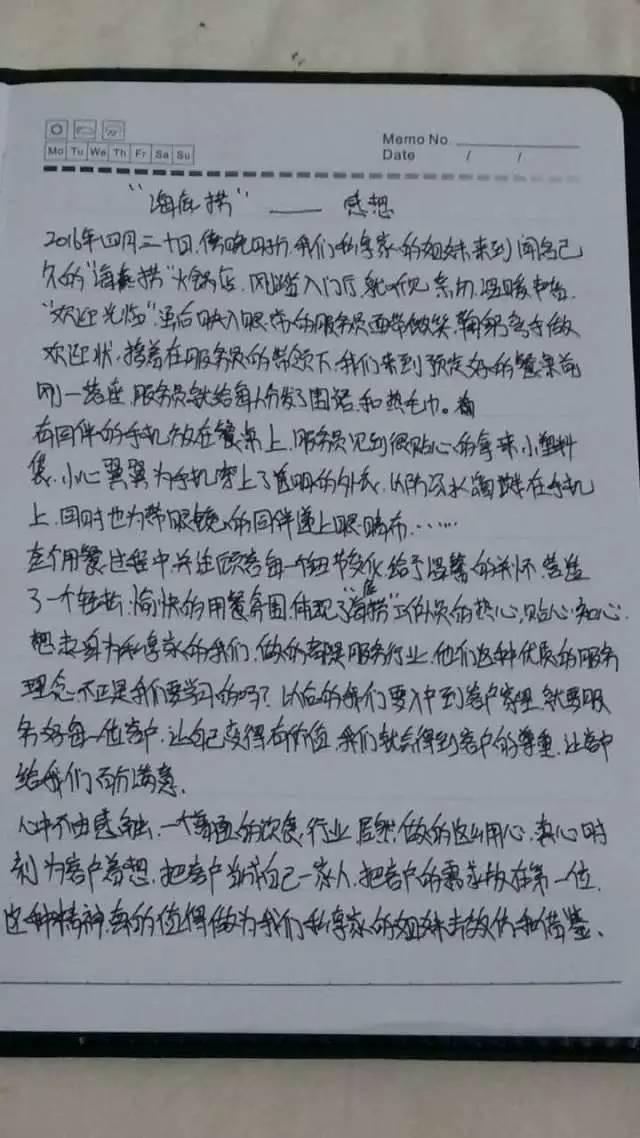 Memo No
Mo Tu We Th Fr Sa Su
Date / /
“海底捞”——感想
2016年四月二十日,傍晚时分,我们私享家的姐妹来到闻名已
久的“海底捞”火锅店,刚踏入门厅,就听见亲切、温暖声音
“欢迎光临”.随后映入眼帘的服务员面带微笑,鞠躬
欢迎状,接着在服务员的带领下,我们来到预定好的餐桌前
刚一落座,服务员就给每人分发了围裙和热毛巾。
有同伴的手机放在餐桌上,服务员见到很贴心的拿来小塑料
袋,小心翼翼为手机穿上了透明的外衣,以防汤水洒落在手机
上,同时也为带眼镜的同伴递上眼睛布,……
在个用餐过程中,关注顾客每一个细节变化,给予温馨的关怀,营造
了一个轻松、愉快的用餐氛围,体现了“海底捞”工作人员的热心,贴心,知心.
想想身为私享家的我们,做的都是服务行业,他们这种优质的服务
理念,不正是我们要学习的吗?以后的我们要入户到客户家里,就要服
务好每一位客户,让自己变得有价值,我们就会得到客户的尊重,让客户
给我们百分满意.
心中不由感触,一个普通的饮食行业居然做的这么用心,真心时
刻为客户着想,把客户当成自己一家人,把客户的需求放在第一位,
这种精神,真的值得做为我们私享家的姐妹去效仿和借鉴、